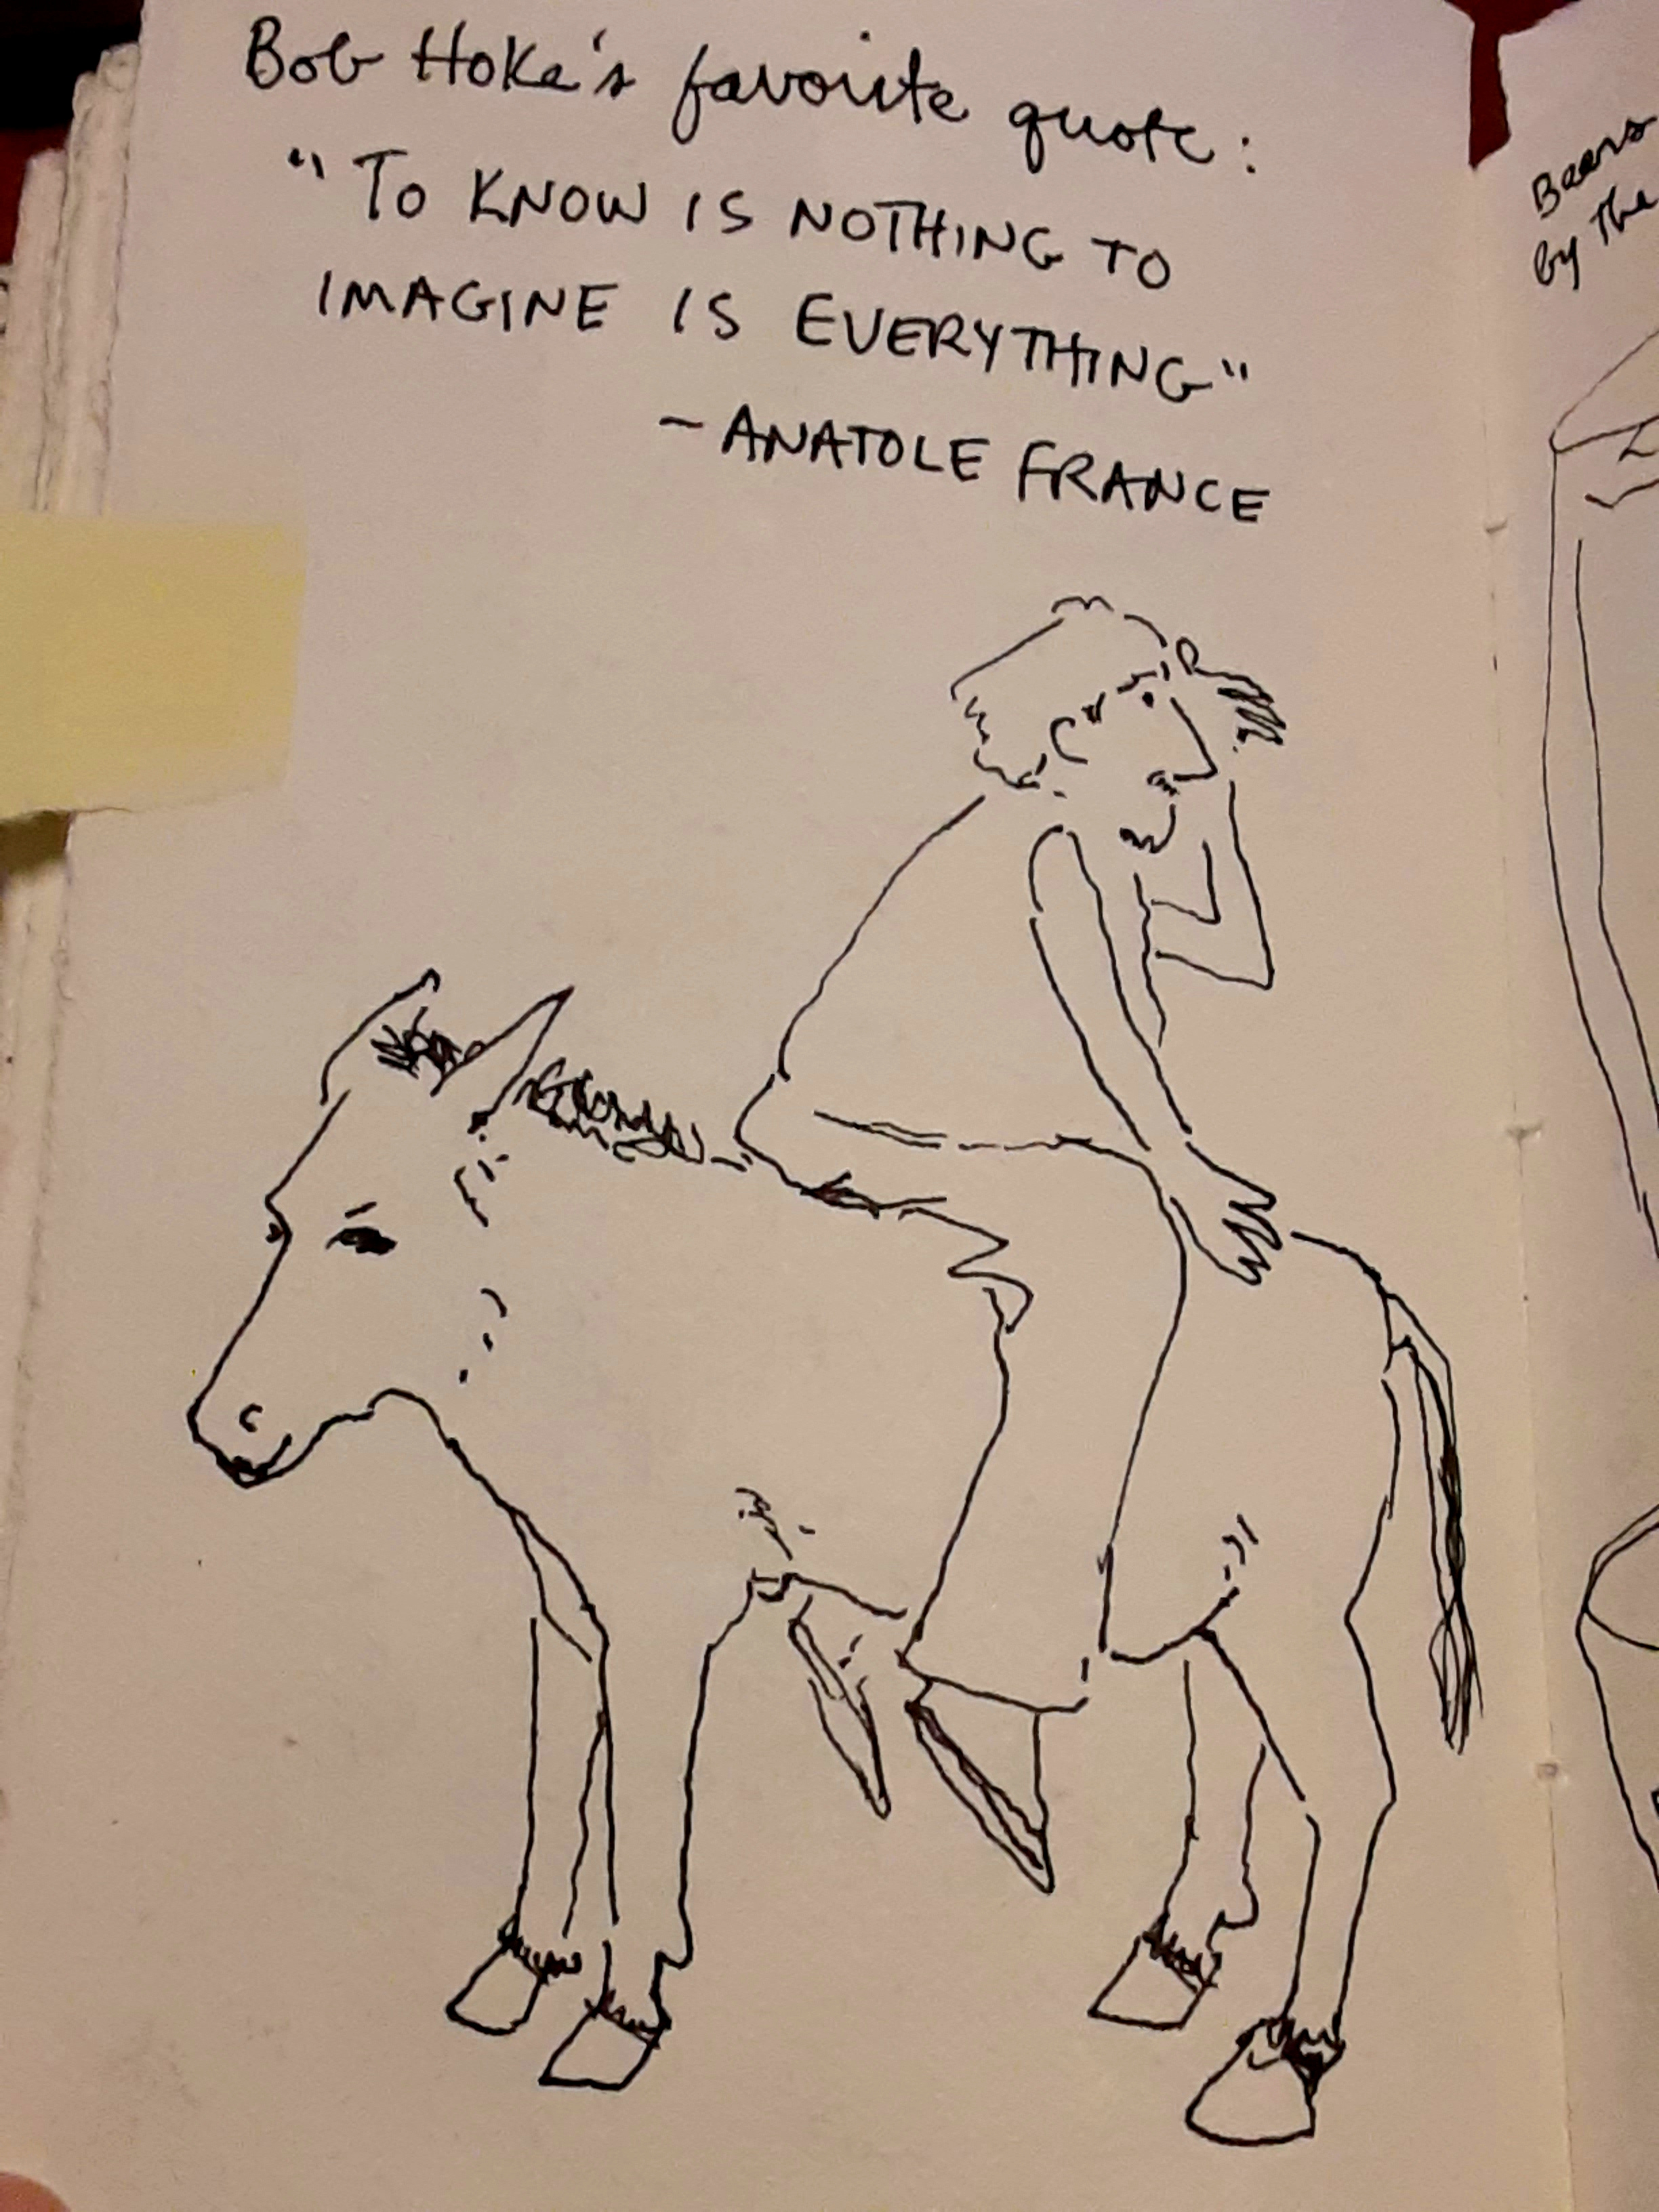 Bob Hoke's favorite quote:
"TO KNOW IS NOTHING TO
IMAGINE IS EVERYTHING"
- ANATOLE FRANCE
Beans
by the